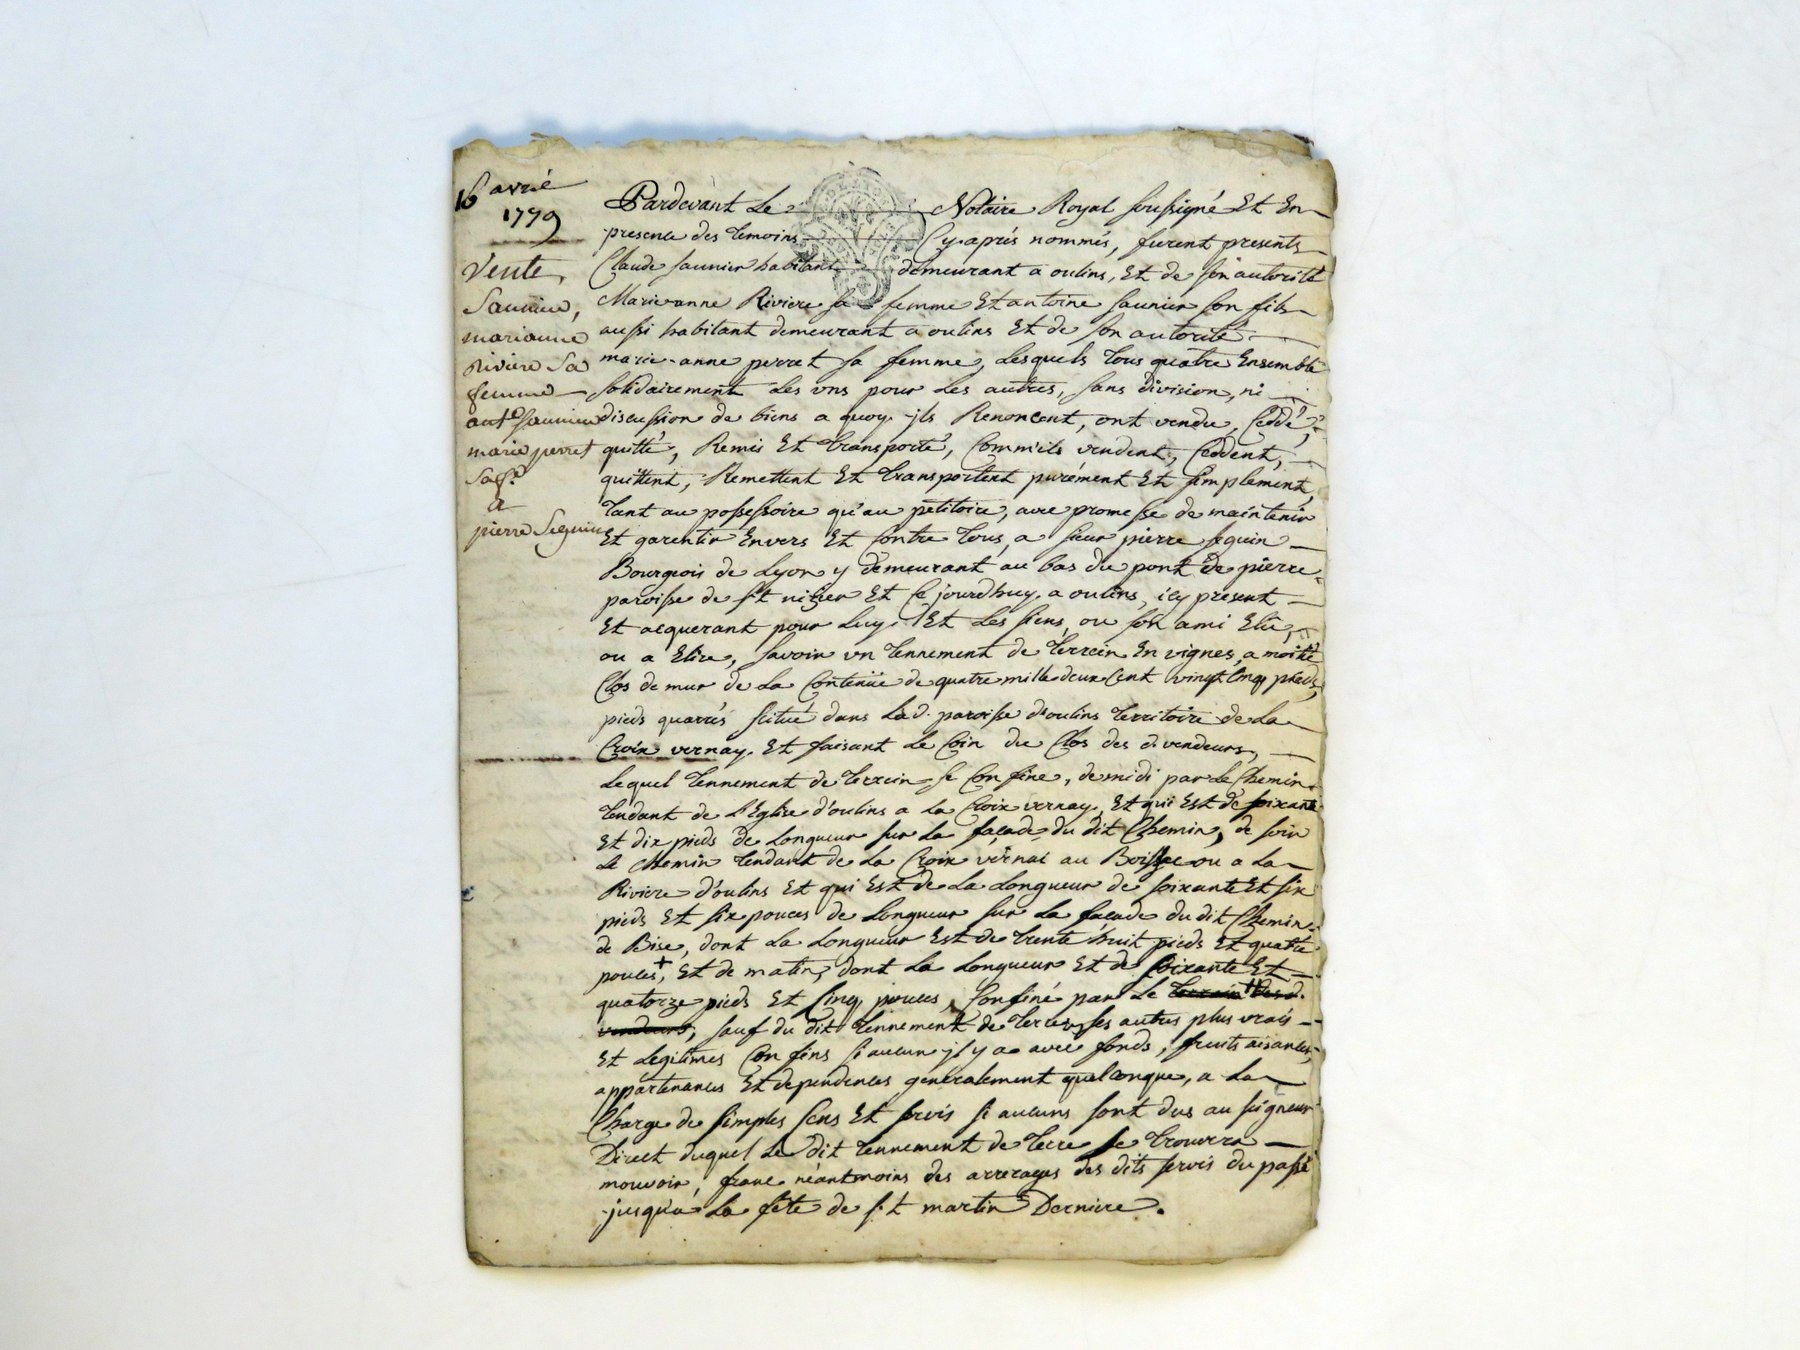 16 avril
1779
Vente,
Saunier,
marianne
Riviere Sa
femme
ant.e Saunier
marie perret
Sa f.e
a
pierre Seguin
Pardevant Le Notaire Royal soussigné Et En
presence des temoins Cy-aprés nommés, furent presents
Claude saunier habitant demeurant a oulins, Et de son autorité
Marie-anne Riviere sa femme Et antoine saunier son fils
aussi habitant demeurant a oulins Et de son autorité
marie-anne perret sa femme, Lesquels tous quatre Ensemble
solidairement Les uns pour Les autres, sans division, ni
discussion de biens a quoy jls Renoncent, ont vendu, Ceddé,
quitté, Remis Et transporté, Comm'ils vendent, Ceddent,
quittent, Remettent Et transportent purément Et simplement,
tant au possessoire qu'au petitoire, avec promesse de maintenir
Et garentir Envers Et Contre tous, a sieur pierre seguin
Bourgeois de Lyon y demeurant au bas du pont de pierre
paroisse de s.t nizier Et Ce jourdhuy a oulins, icy présent
Et acquerant pour Luy Et Les siens, ou son ami Elû,
ou a Elire, savoir un tennement de terrein En vignes, a moitié
Clos de mur de La Contenüe de quatre mille deux Cent vingt Cinq pieds,
pieds quarrés scitué dans La d. paroisse d'oulins territoire de La
Croix vernay. Et faisant Le Coin du Clos des d. vendeurs,
Lequel tennement de terrein se Confine, de midi par Le Chemin
tendant de L'Eglise d'oulins a La Croix vernay. Et qui Est de soixante
Et dix pieds de Longueur sur La façade du dit Chemin, de soir
Le Chemin tendant de La Croix vernai au ou a La
Riviere d'oulins Et qui Est de La Longueur de soixante Et six
pieds Et six pouces de Longueur sur La façade du dit Chemin
de Bise, dont La Longueur Est de trente huit pieds Et quatre
pouces +, Et de matin, dont La Longueur Et de soixante Et
quatorze pieds Et Cinq pouces, Confiné par Le terrein des d.
vendeurs, sauf du dit tennement de terre, ses autres plus vrais
Et Legitimes Confins si aucun jl y a avec fonds, fruits aisances,
appartenances Et dependences generalement quelconque, a La
Charge de simples Cens Et servis si aucuns sont dus au seigneur
Direct duquel Le dit tennement de terre se trouvera
mouvoir, franc néantmoins des arrerages des dits servis du passé
jusqu'a La fête de s.t martin Derniere.